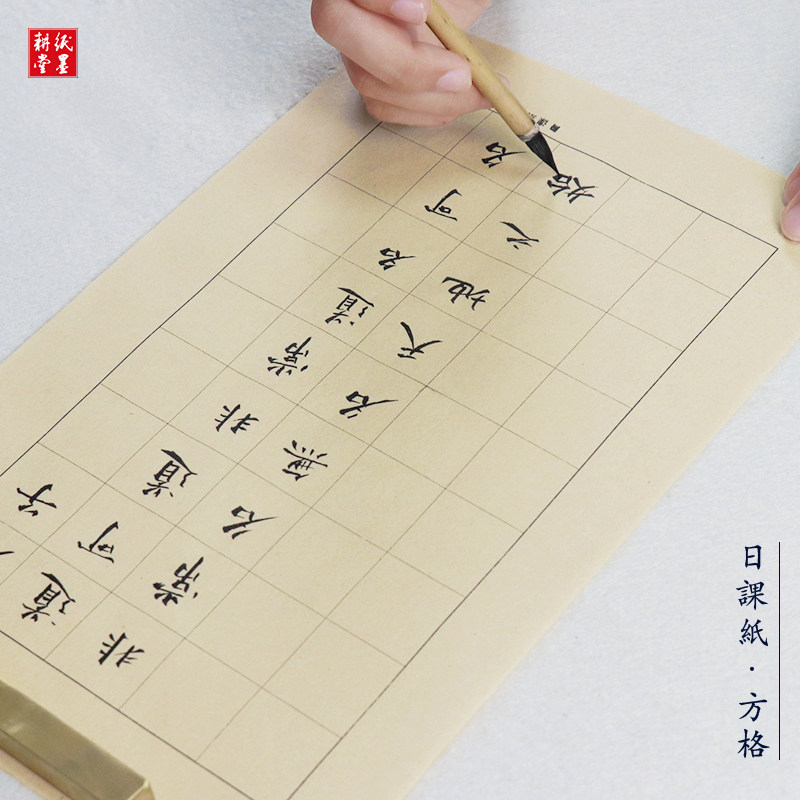 紙墨
耕堂
子
道可道非常道名可名
非常名無名天地之始
日課紙·方格